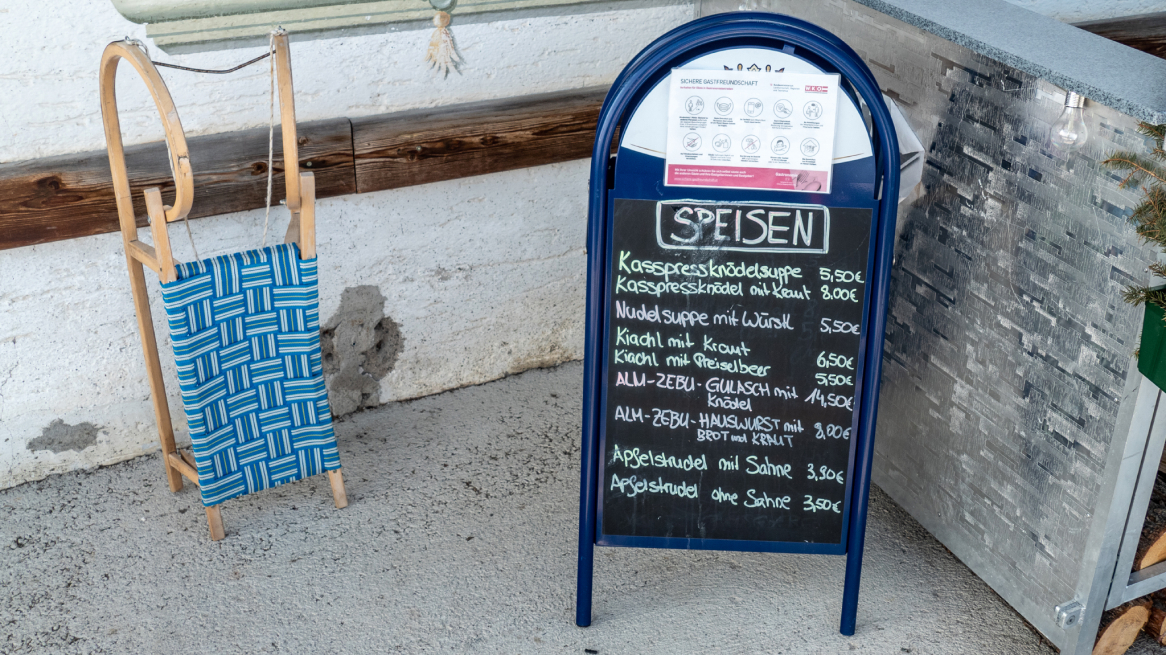 SICHERE GASTFREUNDSCHAFT
WKO
SPEISEN
Kasspressknödelsuppe 5,50€
Kasspressknödel mit Kraut 8,00€
Nudelsuppe mit Würstl 5,50€
Kiachl mit Kraut 6,50€
Kiachl mit Preiselbeer 5,50€
ALM-ZEBU-GULASCH mit 14,50€
Knödel
ALM-ZEBU-HAUSWURST mit 8,00€
BROT und KRAUT
Apfelstrudel mit Sahne 3,90€
Apfelstrudel ohne Sahne 3,50€